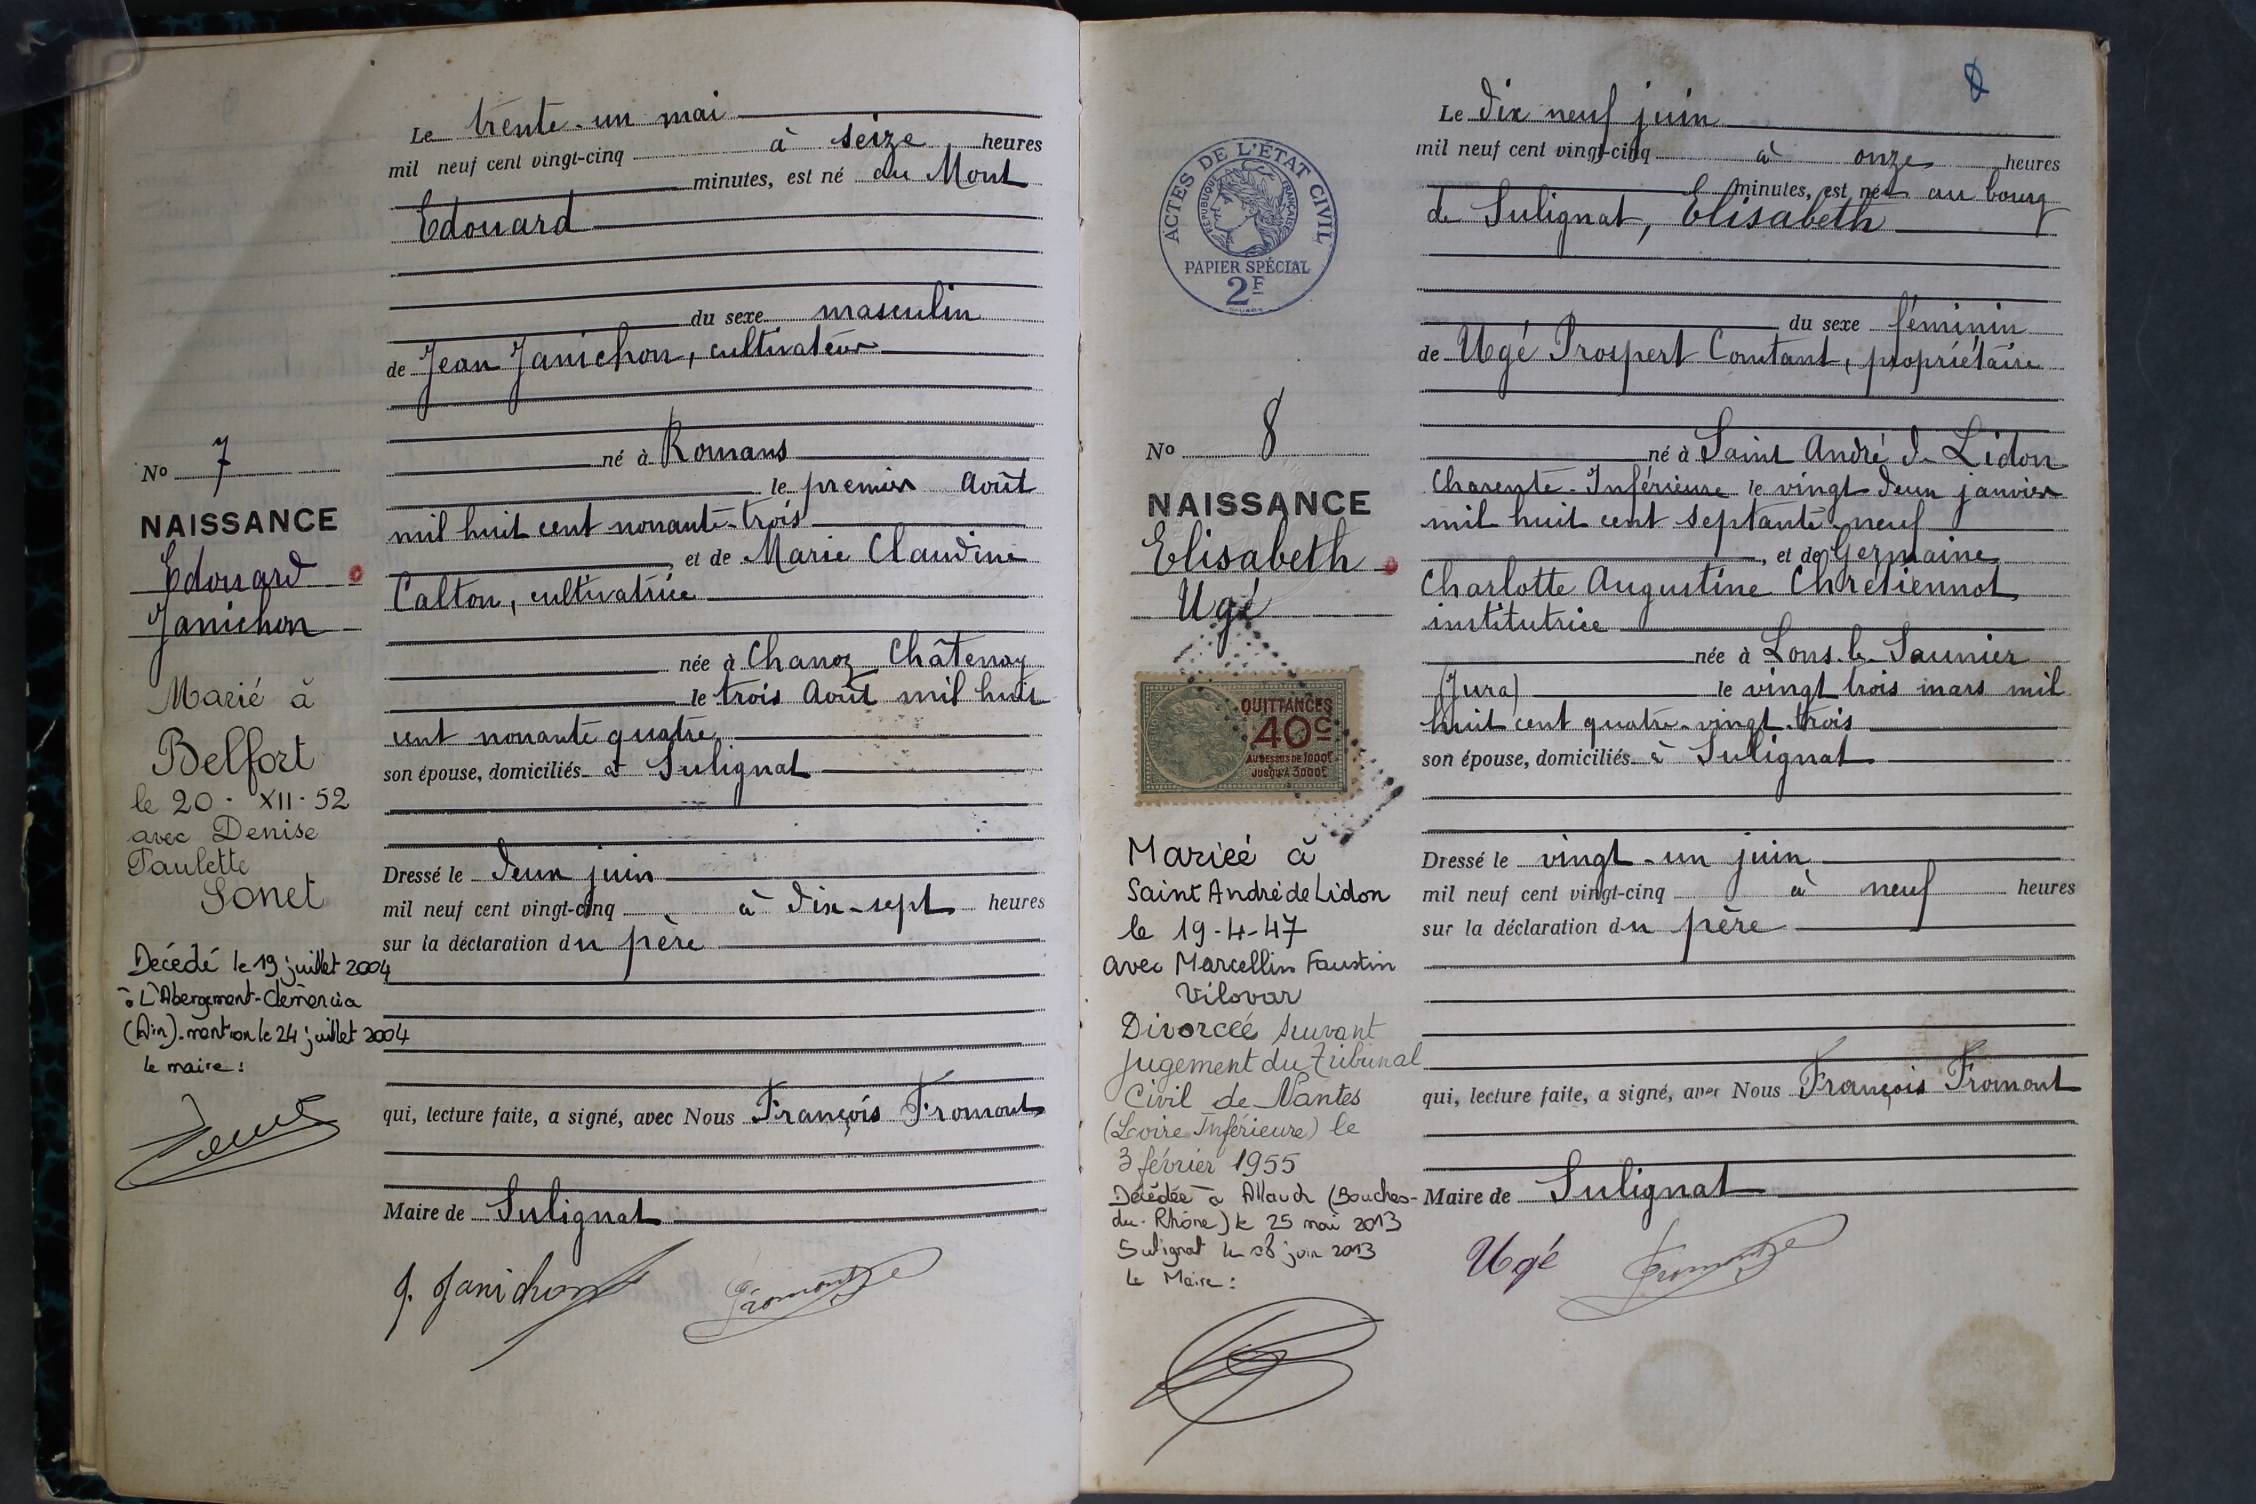 Le trente-un mai
mil neuf cent vingt-cinq à seize heures
minutes, est né au Mont
Edouard
du sexe masculin
de Jean Janichon, cultivateur
né à Romans
le premier Août
mil huit cent nonante-trois
, et de Marie Claudine
Calton, cultivatrice
née à Chanoz Châtenay
le trois Août mil huit
cent nonante quatre
son épouse, domiciliés à Sulignat
Dressé le deux juin
mil neuf cent vingt-cinq à dix-sept heures
sur la déclaration du père
qui, lecture faite, a signé, avec Nous François Fromont
Maire de Sulignat
J. Janichon
No 7
NAISSANCE
Edouard
Janichon
Marié à
Belfort
le 20 - XII - 52
avec Denise
Paulette
Sonet
Décédé le 19 juillet 2004
à L'Abergement-Clémencia
(Ain). mention le 24 juillet 2004
le maire :
8
Le dix neuf juin
mil neuf cent vingt-cinq à onze heures
minutes, est née au bourg
de Sulignat, Elisabeth
du sexe féminin
de Ugé Prospert Constant, propriétaire
né à Saint André de Lidon
Charente-Inférieure le vingt deux janvier
mil huit cent septante-neuf
, et de Germaine
Charlotte Augustine Chretiennot
institutrice
née à Lons-le-Saunier
(Jura) le vingt trois mars mil
huit cent quatre-vingt-trois
son épouse, domiciliés à Sulignat
Dressé le vingt-un juin
mil neuf cent vingt-cinq à neuf heures
sur la déclaration du père
qui, lecture faite, a signé, avec Nous François Fromont
Maire de Sulignat
Ugé
ACTES DE L'ÉTAT CIVIL
RÉPUBLIQUE FRANÇAISE
PAPIER SPÉCIAL
2F
No 8
NAISSANCE
Elisabeth
Ugé
QUITTANCES
40c
AU DESSUS DE 1000F
JUSQU'A 3000F
Mariée à
Saint André de Lidon
le 19-4-47
avec Marcellin Faustin
Vilovar
Divorcée suivant
jugement du Tribunal
Civil de Nantes
(Loire Inférieure) le
3 février 1955
Décédée à Allauch (Bouches-
du-Rhône) le 25 mai 2013
Sulignat le 08 juin 2013
Le Maire :